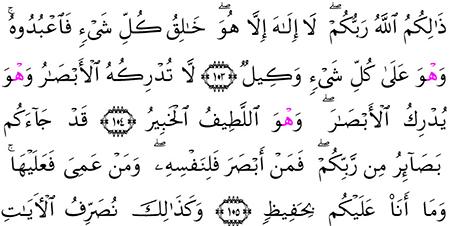 ذَٰلِكُمُ ٱللَّهُ رَبُّكُمْۖ لَآ إِلَٰهَ إِلَّا هُوَۖ خَٰلِقُ كُلِّ شَىْءٍ فَٱعْبُدُوهُۚ
وَهْوَ عَلَىٰ كُلِّ شَىْءٍ وَكِيلٌ ۝١٠٣ لَّا تُدْرِكُهُ ٱلْأَبْصَٰرُ وَهْوَ
يُدْرِكُ ٱلْأَبْصَٰرَۖ وَهْوَ ٱللَّطِيفُ ٱلْخَبِيرُ ۝١٠٤ قَدْ جَآءَكُم
بَصَآئِرُ مِن رَّبِّكُمْۖ فَمَنْ أَبْصَرَ فَلِنَفْسِهِۦۖ وَمَنْ عَمِىَ فَعَلَيْهَاۚ
وَمَآ أَنَا۠ عَلَيْكُم بِحَفِيظٍ ۝١٠٥ وَكَذَٰلِكَ نُصَرِّفُ ٱلْءَايَٰتِ